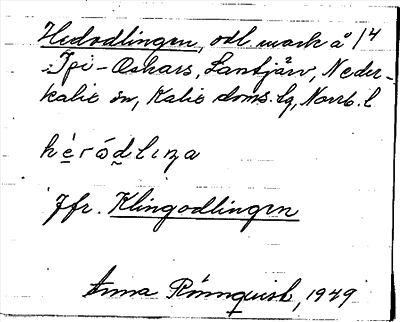 Hedodlingen, odl. mark å 1/4
Ipi-Oskars, Lantjärv, Neder-
kalix sn, Kalix doms. lg, Norrb. l
Jfr. Klingodlingen
Anna Rönnquist, 1949